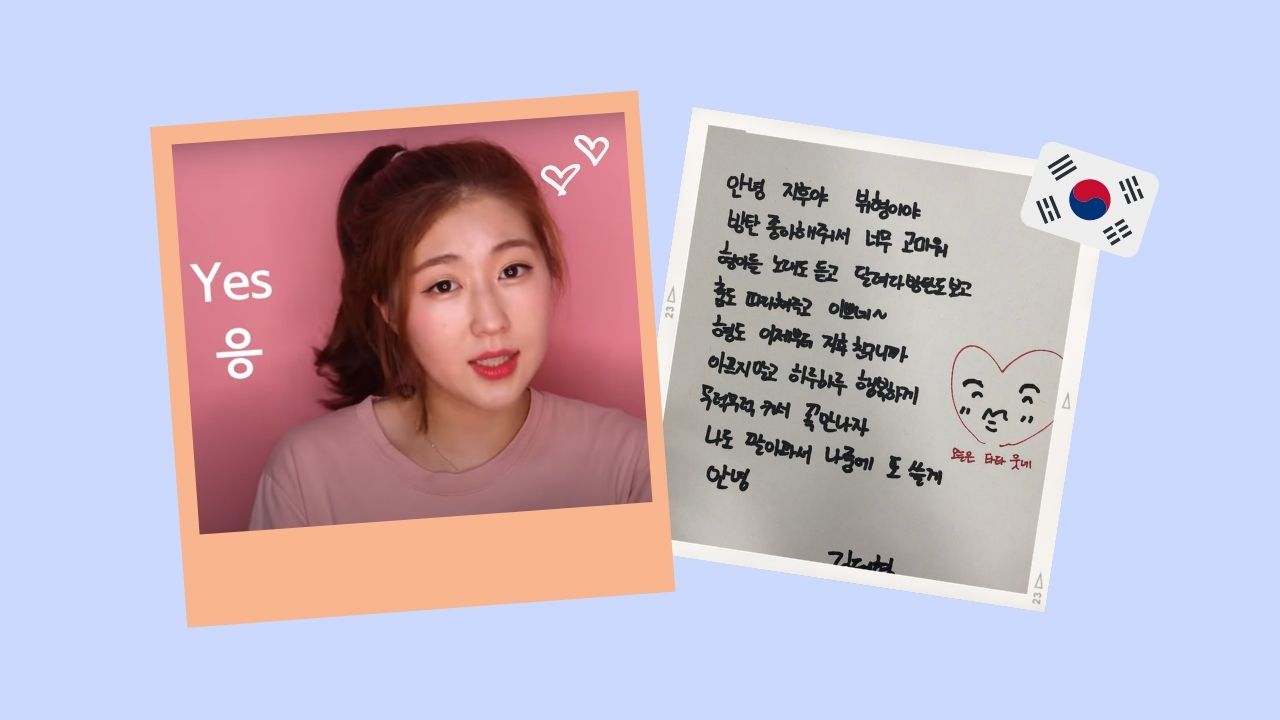 Yes
응
안녕 지후야 뷔형이야
방탄 좋아해줘서 너무 고마워
형아들 노래도 듣고 달려라 방탄도 보고
춤도 따라해주고 이쁘네~
형도 이제부터 지후 친구니까
아프지말고 하루하루 행복하게
무럭무럭 커서 꼭 만나자
나도 말이타서 나중에 또 쓸게
안녕
오늘은 타타 웃네
23
23